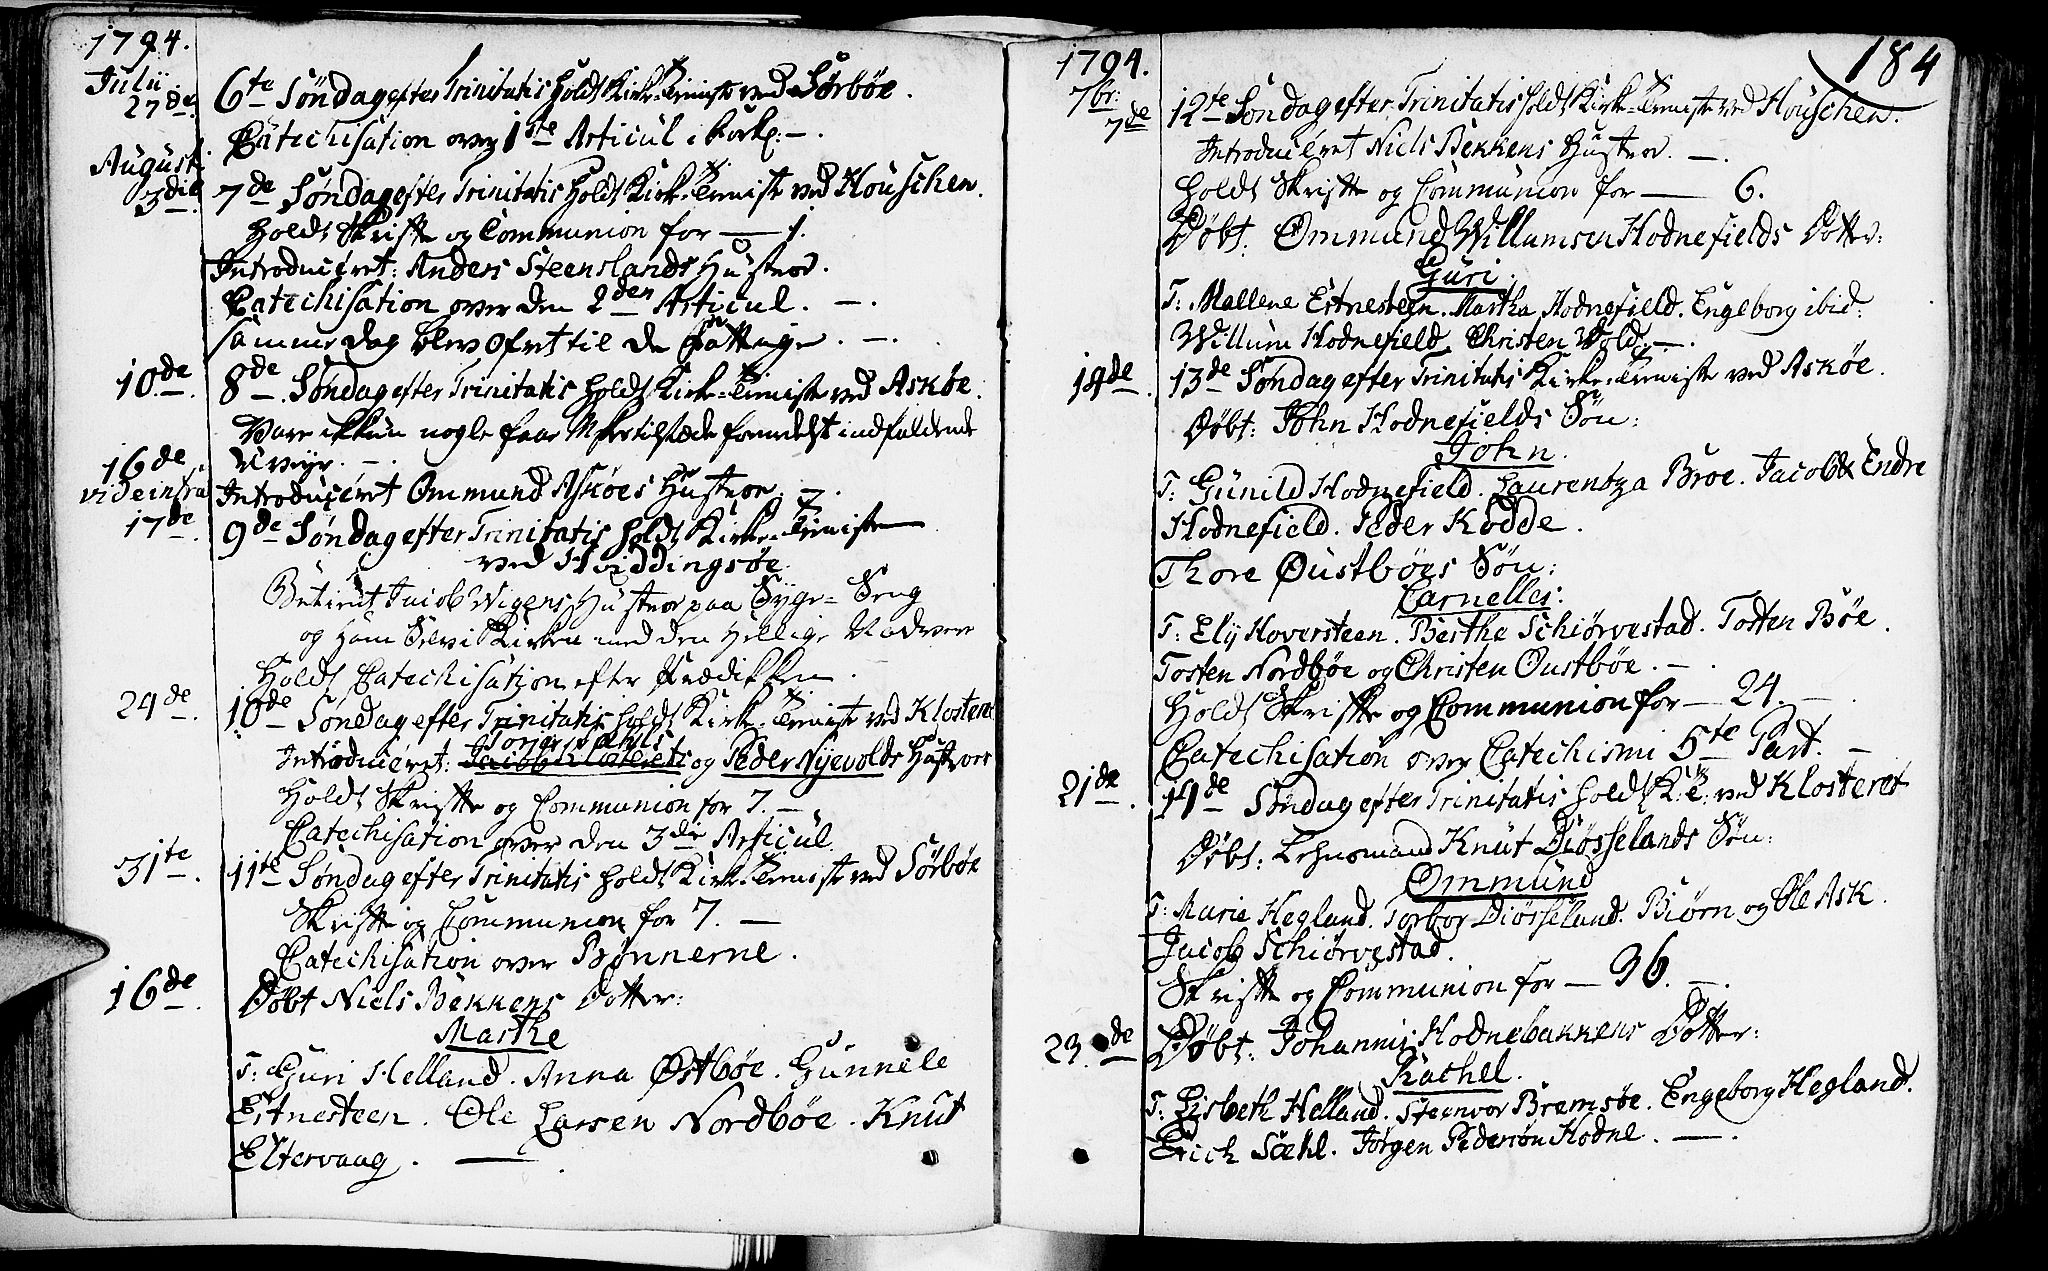 1794.
Julii
27de. 6te Søndag efter Trinitatis holdt Kirke-Tieniste ved Sørbøe.
Catechisation over 1ste Articul i Kirke: —.
August.
3die. 7de Søndag efter Trinitatis holdt Kirke-Tieniste ved Houschen.
Holdt Skrifte og Communion for — 1.
Introduceret: Anders Steenslands Hustroe.
Catechisation over den 2den Articul. —.
samme dag blev ofret til de Fattige. —.
10de. 8de. Søndag efter Trinitatis holdt Kirke-Tieniste ved Askøe.
Vare ikkun nogle faae M: tilstæde formedelst indfaldende
Uvejr. —.
16de
vide infra Introduceret Ommund Askøes Hustroe. —.
17de. 9de Søndag efter Trinitatis holdt Kirke-Tieniste
ved Hviddingsøe
Betient Jacob Vigens Hustroe paa Syge-Seng
og Ham Selv i Kirken med den Hellige Nadvere
Holdt Catechisation efter Prædikken.
24de. 10de Søndag efter Trinitatis holdt Kirke-Tieniste ved Klosteret
Torger Sæhls
Introduceret: Jacob Klosterets og Peder Nyevolds Hustroer
Holdt Skrifte og Communion for 7. —
Catechisation over den 3die Articul.
31te. 11te Søndag efter Trinitatis holdt Kirke-Tieniste ved Sørbøe
Skrifte og Communion for 7. —
Catechisation over Bønnerne.
16de. Døbt Niels Bekkens Dotter:
Marthe
T: Guri Helland. Anna Østbøe. Gunnele
Estnesteen. Ole Larsen Nordbøe. Knut
Eltervaag. —.
184
1794.
7br:
7de 12te Søndag efter Trinitatis holdt Kirke-Tieniste ved Houschen.
Introduceret Niels Bekkens Hustroe. —.
Holdt Skrifte og Communion for — 6.
Døbt: Ommund Willumsen Hodnefields Dotter:
Guri.
T: Mallene Estnesteen. Martha Hodnefield. Engeborg ibid:
Willum Hodnefield. Christen Vold. —.
14de. 13de Søndag efter Trinitatis Kirke-Tieniste ved Askøe.
Døbt: John Hodnefields Søn:
John.
T: Gunild Hodnefield. Laurentza Broe. Jacob & Endre
Hodnefield. Peder Kodde.
Thore Øustbøes Søn:
Carnelles:
T: Elij Hoversteen. Berthe Schiørvestad. Tosten Bøe.
Tosten Nordbøe og Christen Oustbøe. —.
Holdt Skrifte og Communion for — 24. —
Catechisation over Catechismi 5te Part. —
21de. 14de Søndag efter Trinitatis holdt K: T: ved Klosteret
Døbt: Lehnsmand Knut Diøsselands Søn:
Ommund
T: Marie Hegland. Torbor Diøsseland. Biørn og Ole Ask.
Jacob Schiørvestad.
Skrifte og Communion for — 36. —.
23.de Døbt: Johannis Hodnebakkens Dotter:
Rachel.
T: Lisbeth Helland. Steenvor Bremsøe. Engeborg Hegland.
Erich Sæhl. Jørgen Pedersøn Hodne. —.